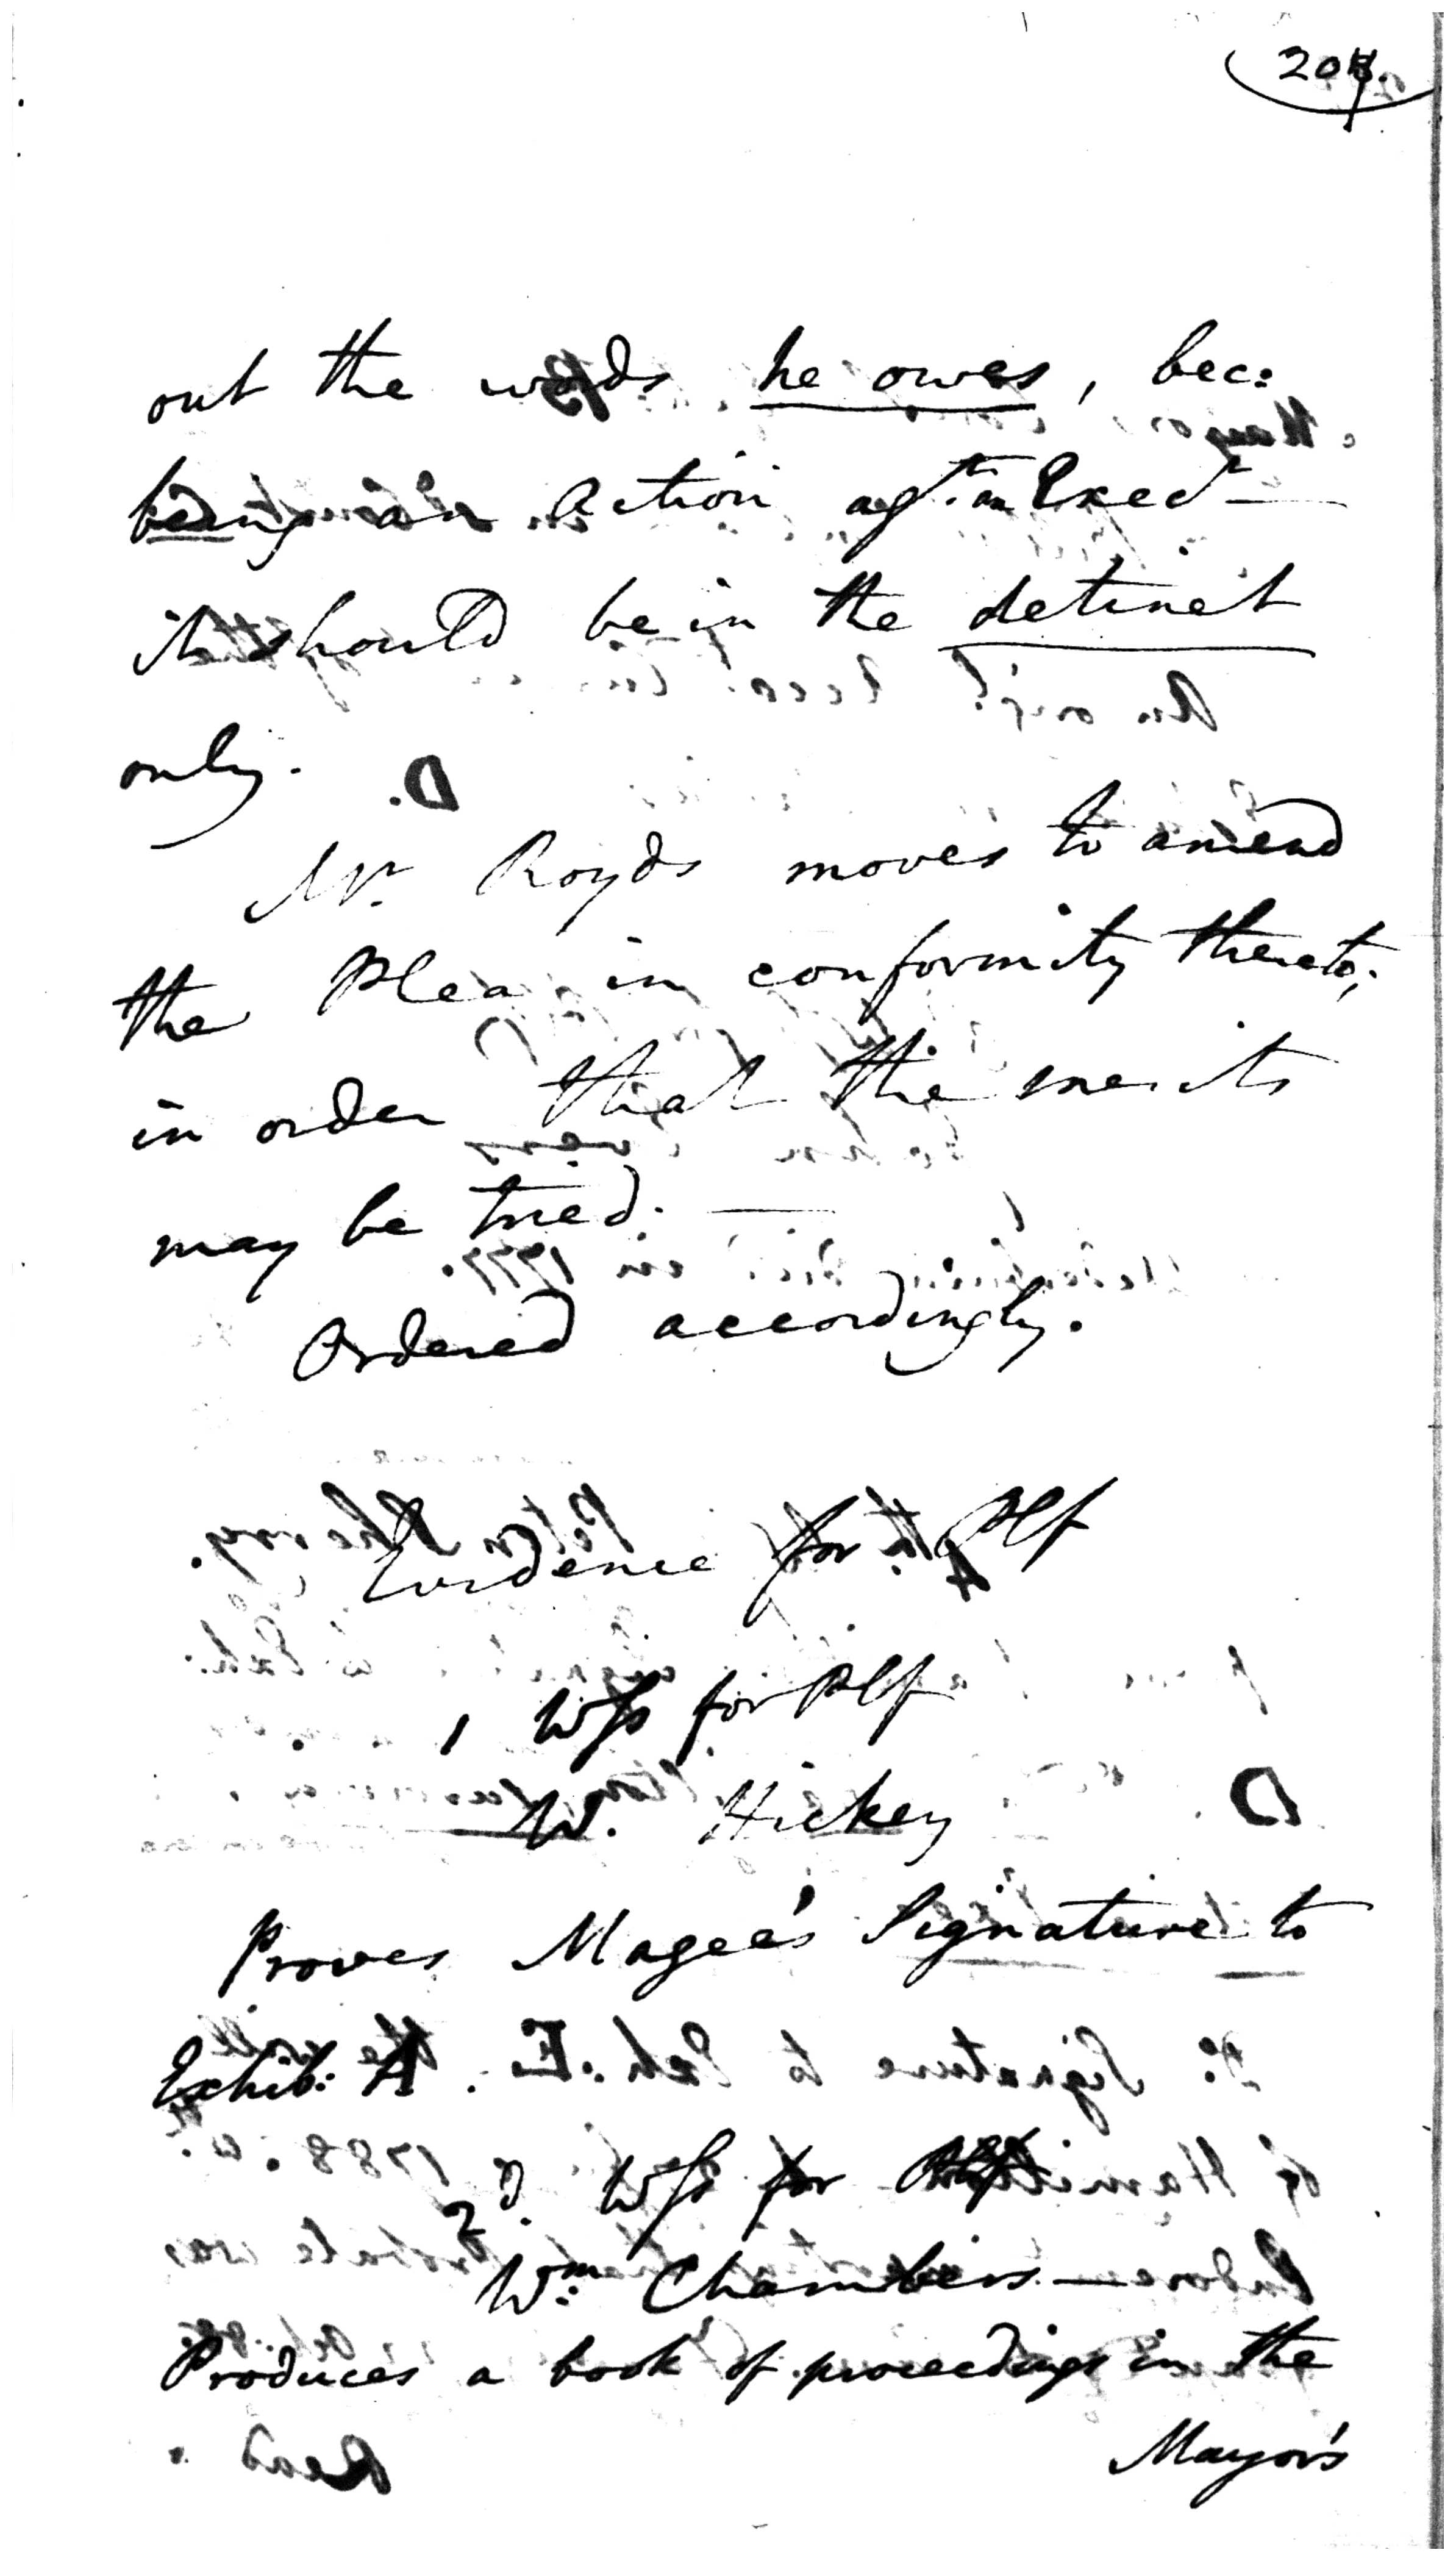 207.
out the words he owes, bec:
being an Action agst. an Execr
it should be in the detinet
only.
Mr. Royds moves to amend
the Plea in conformity thereto;
in order that the merits
may be tried.
Ordered accordingly.
Evidence for Plf
1 Wss for Plf
W. Hickey
Proves Magee's Signature to
Exhib: A.
2d. Wss for Plf
Wm. Chambers
Produces a book of proceedings in the
Mayor's